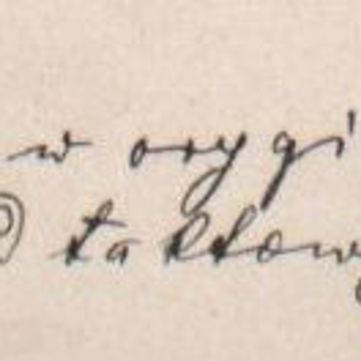 w orygi
taktow